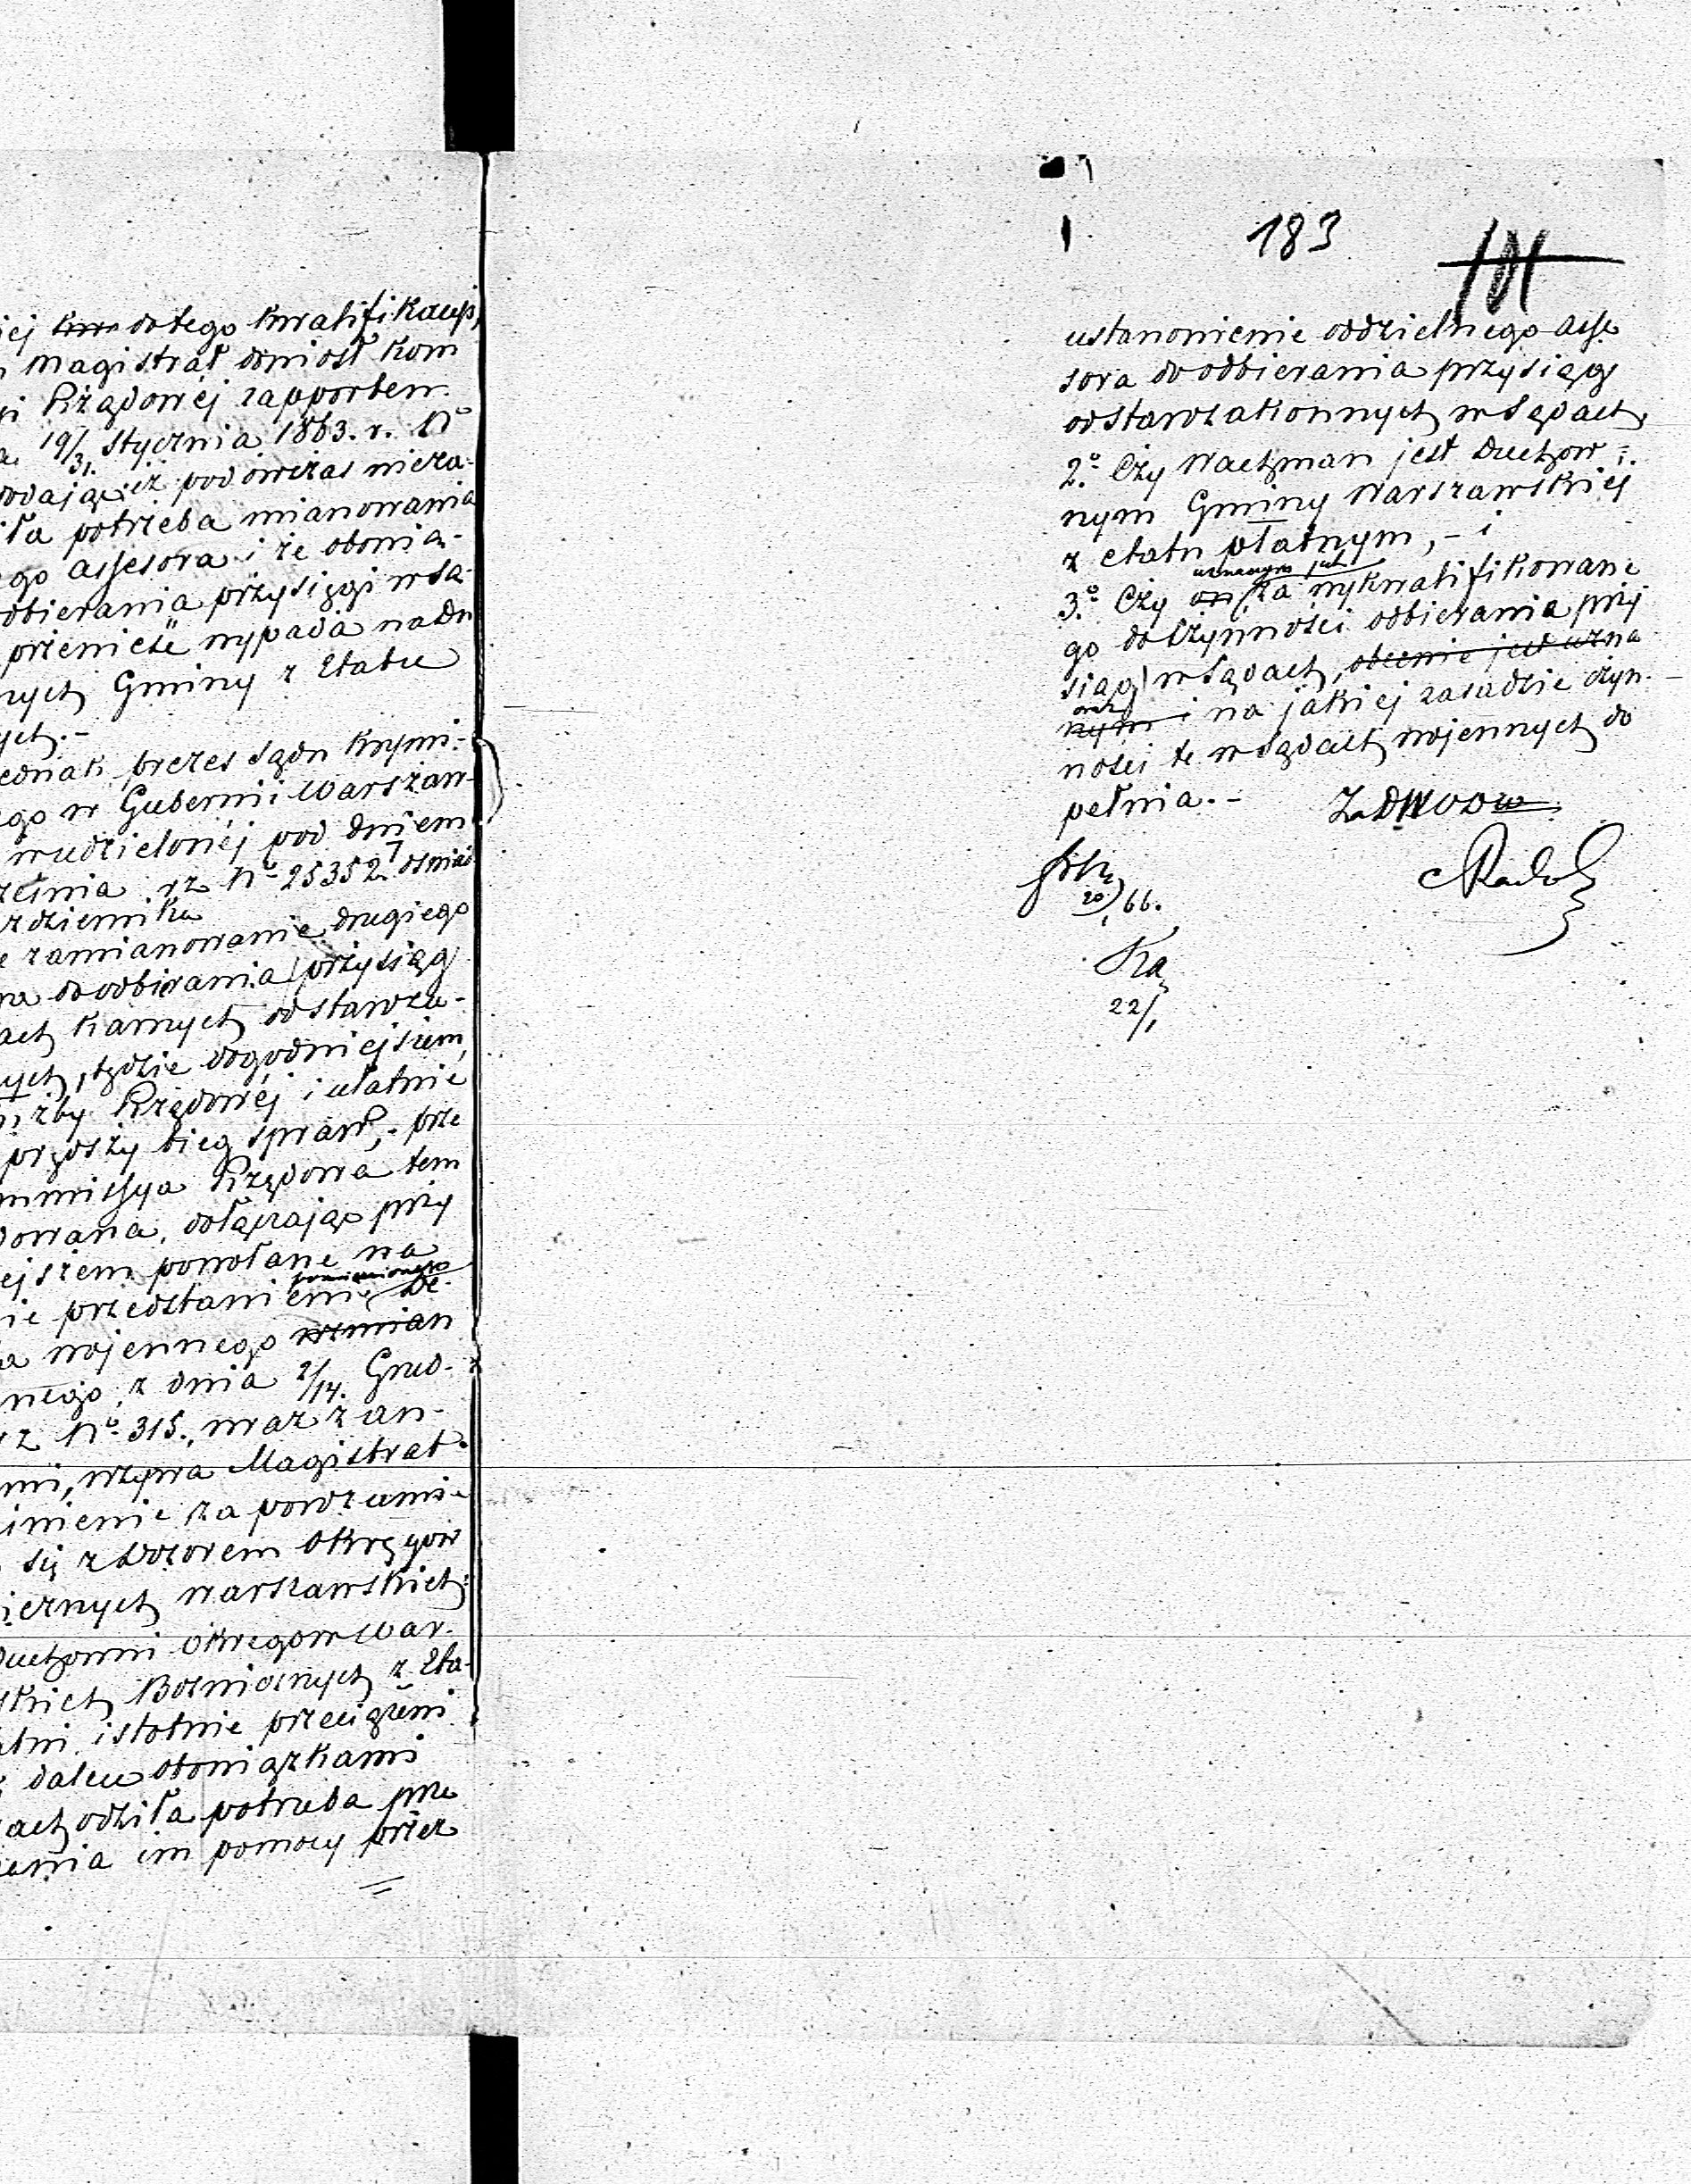 jej do tego kwalifikacyi,
Magistrat doniósł Kom
Rządowej rapportem
19/31. Stycznia 1863. r. No
dodając iż podówczas nieza-
ła potrzeba mianowania
go assesora i że obowią-
odbierania przysięgi w Są-
przenieść wypada na du
nych Gminy z Etatu
ych.-
ednak prezes Sądu Krymi-
ego w Gubernii Warszaw-
w udzielonej pod dniem
rz No 25352. oświad
ździernika
zamianowanie drugiego
ra do odbierania przysiąg
ach Karnych od starоza-
ych, będzie dogodniejszem,
użby Rządowej i ułatwie
prędszy bieg spraw,- prze
mmissya Rządowa tem
dowana, dołączając przy
ejszem powołane na
pomienionego
ie przedstawienie De-
a wojennego wzmian
nego, z dnia 2/14. Grud-
rz No 315., wraz z an-
mi, wzywa Magistrat
inienie za porozumie-
się z Dozorem Okręgów
icznych Warszawskich:
Duchowni Okręgów War-
skich Bożnicznych z Eta-
atni istotnie przeciążeni
dalece obowiązkami
zachodziła potrzeba prze
enia im pomocy przez
183
101
ustanowienie oddzielnego Asse
sora do odbierania przysiąg
od starozakonnych w Sądach,
2.o Czy Wachman jest Duchow-
nym Gminy Warszawskiej
z etatu płatnym,- i
uznanym jest
3.o Czy on za wykwalifikowane
go do czynności odbierania przy
siąg w Sądach, obecnie jest uzna
oraz
nym i na jakiej zasadzie czyn-
ności te w Sądach wojennych do
pełnia.-
20/1 66.
22/1